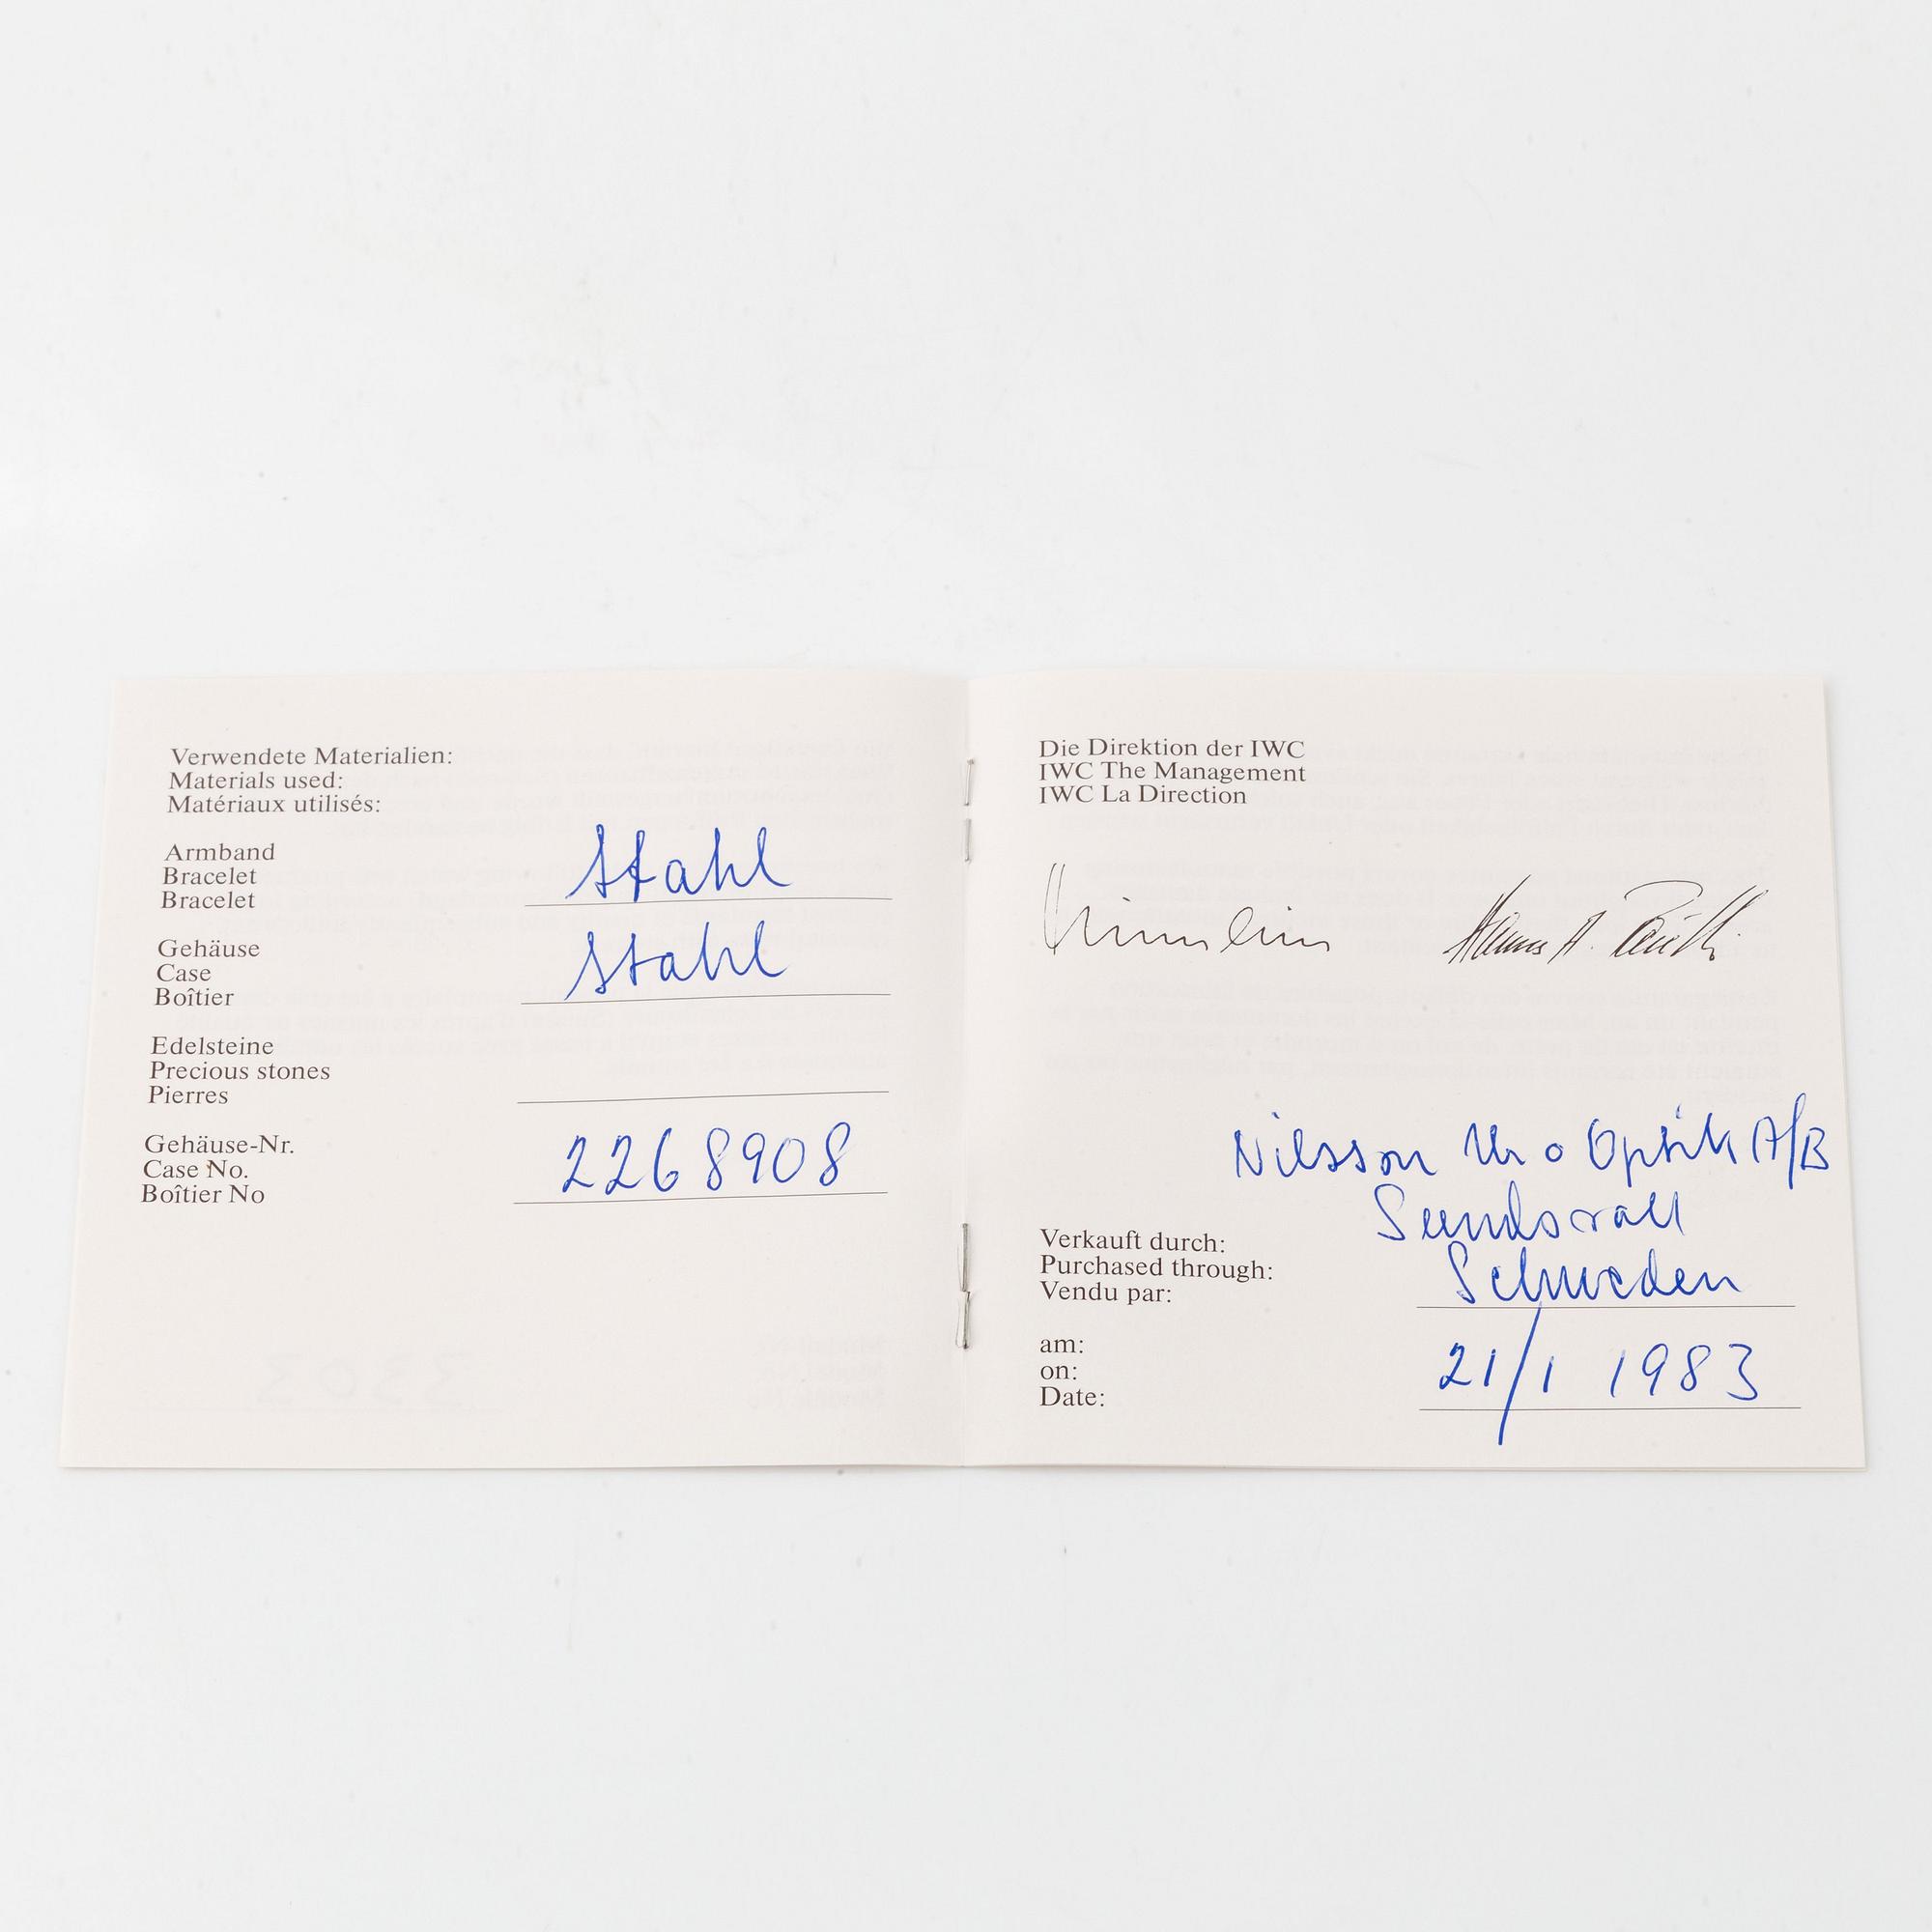 Verwendete Materialien:
Materials used:
Matériaux utilisés:
Armband
Bracelet
Bracelet
Stahl
Gehäuse
Case
Boîtier
Stahl
Edelsteine
Precious stones
Pierres
Gehäuse-Nr.
Case No.
Boîtier No
2268908
Die Direktion der IWC
IWC The Management
IWC La Direction
Nilsson Ur o Optik A/B
Sundsvall
Schweden
Verkauft durch:
Purchased through:
Vendu par:
am:
on:
Date:
21/1 1983